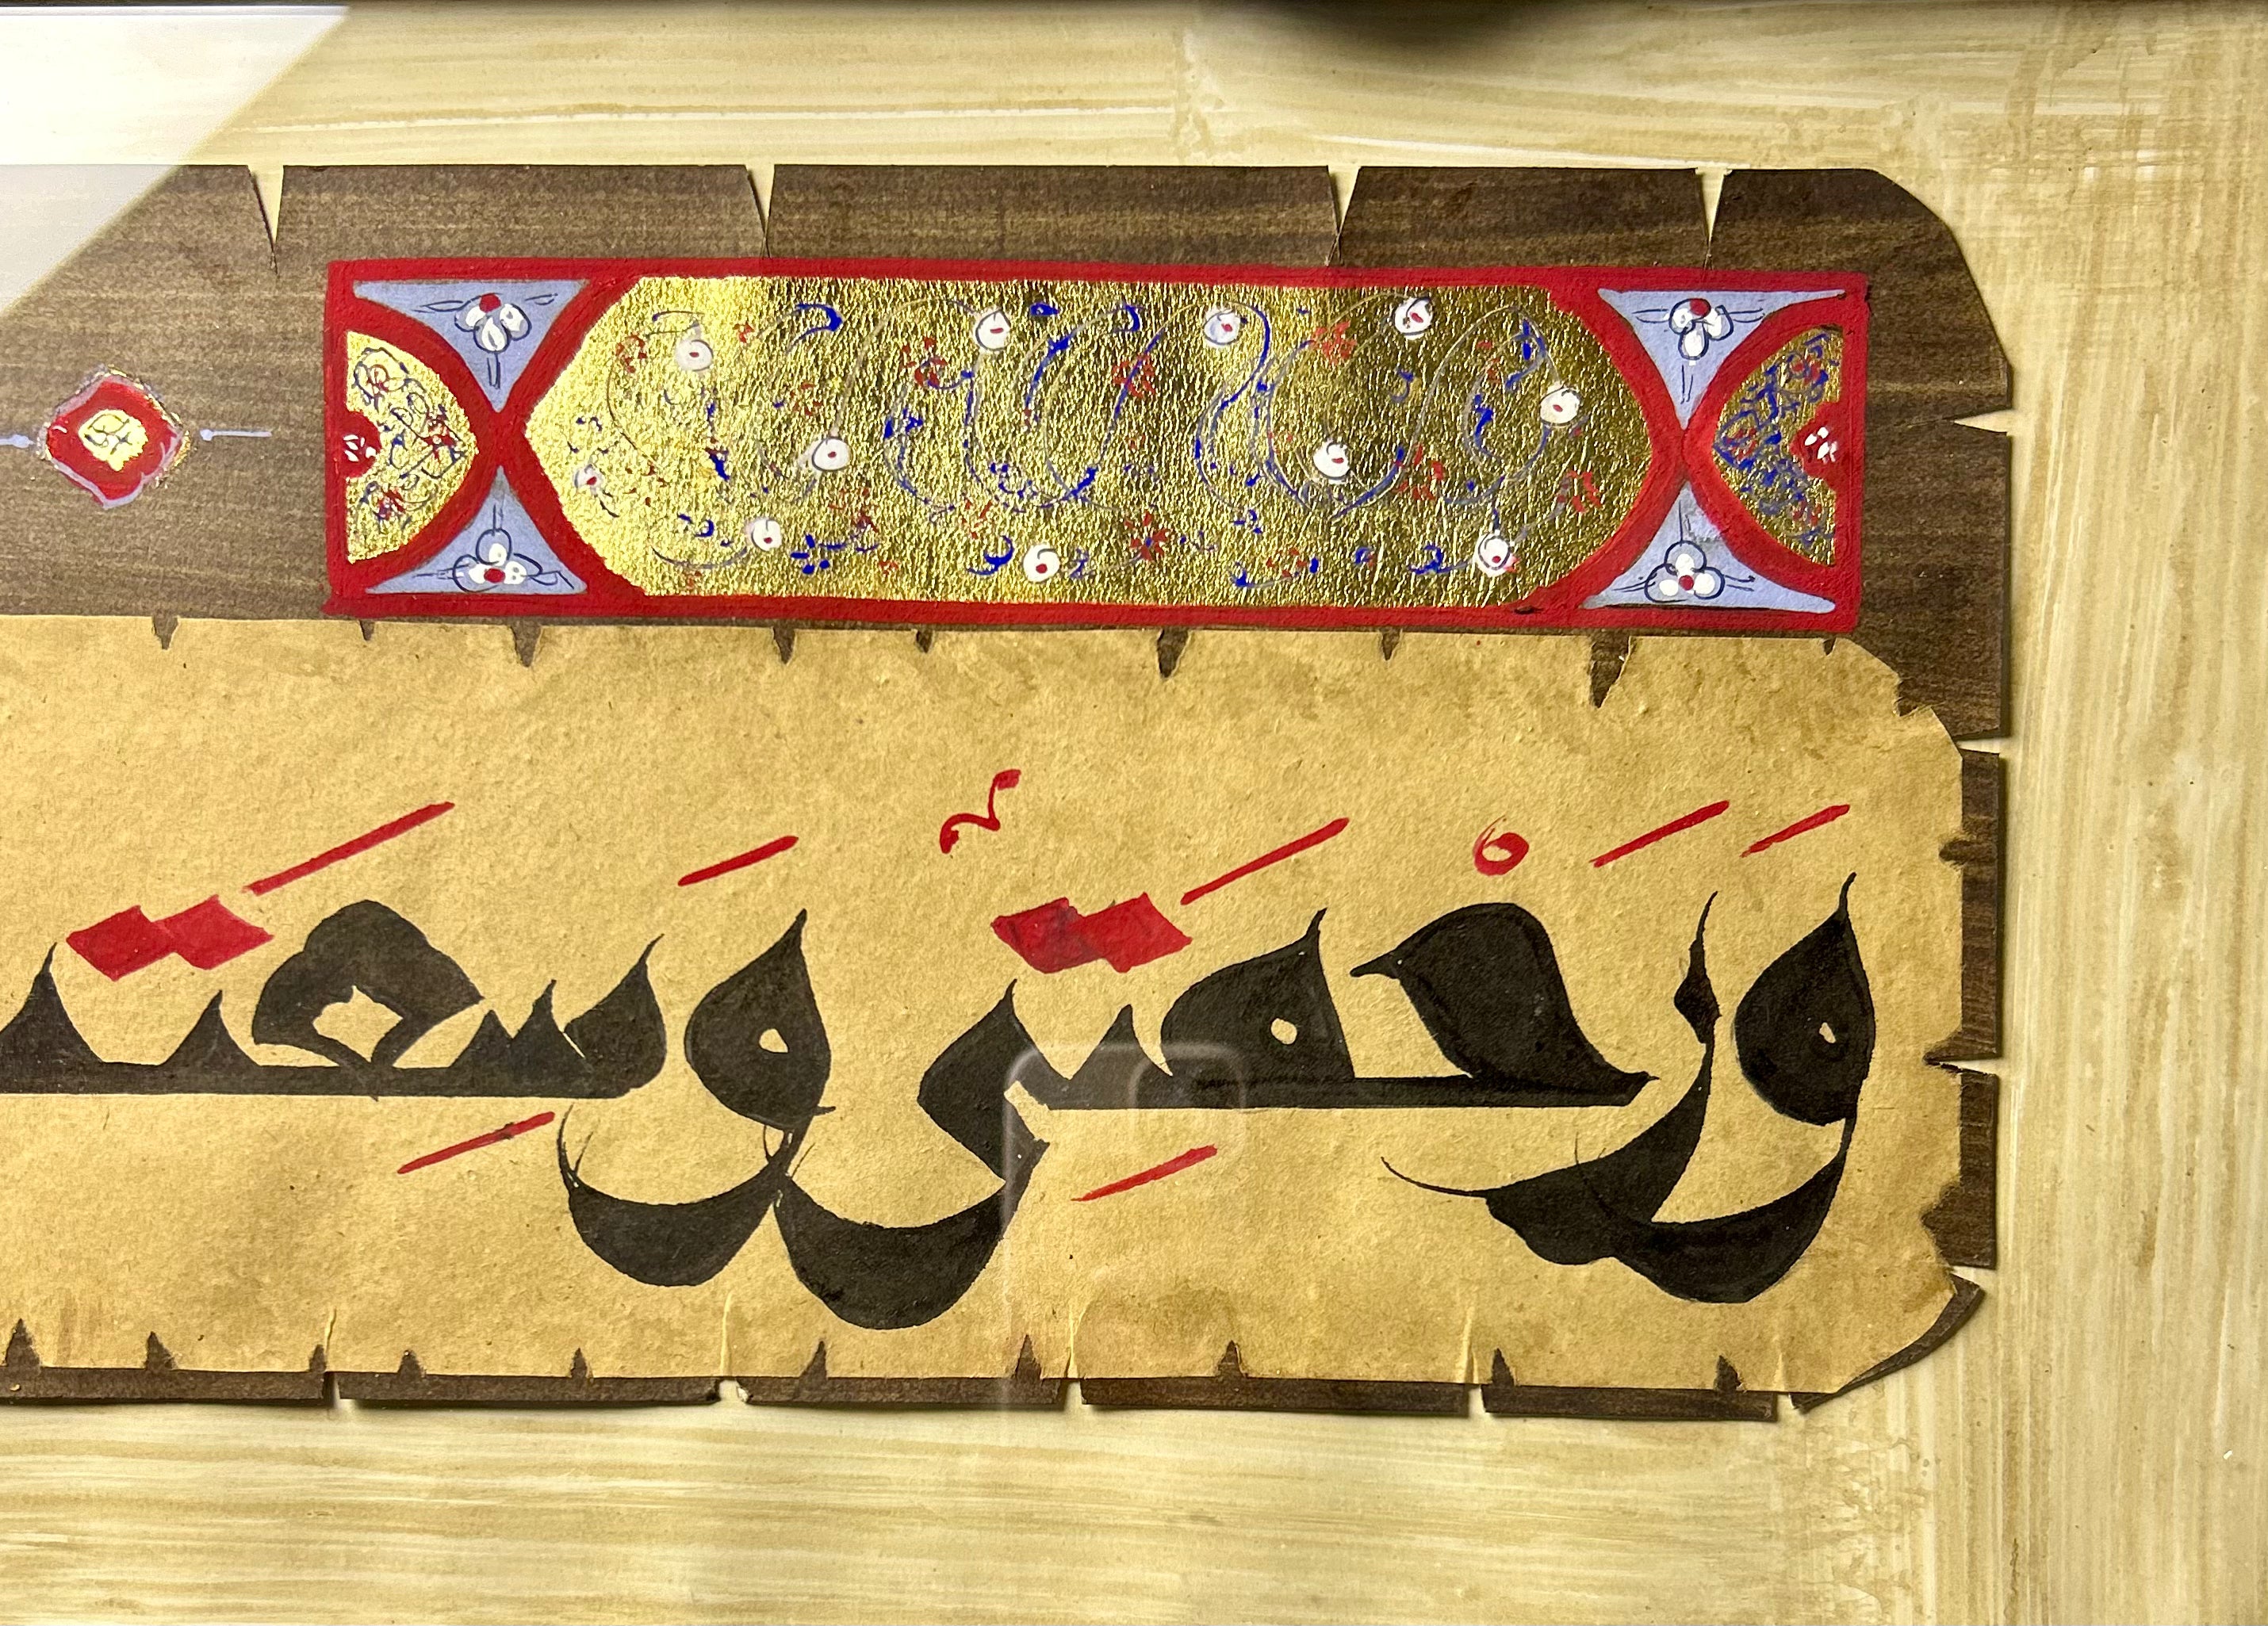 وَرَحْمَتِىْ وَسِعَت